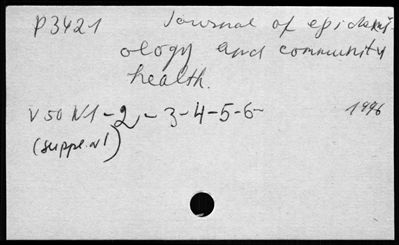 P3421 Journal of epidemi
ology and community
health.
V 50 N1-2-3-4-5-6- 1996
(suppl. n1)